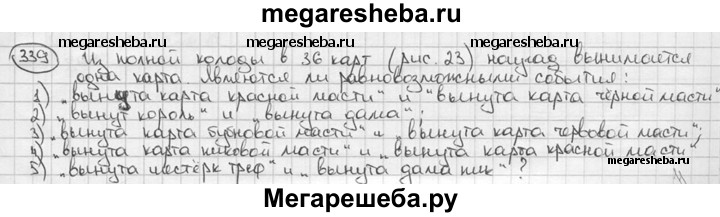 megaresheba.ru
339 Из полной колоды в 36 карт (рис. 23) наугад вынимается
megaresheba.ru megaresheba.ru
одна карта. Являются ли равновозможными события:
1) „вынута карта красной масти“ и „вынута карта чёрной масти“
2) „вынут король“ и „вынута дама“;
3) „вынута карта бубновой масти“ и „вынута карта червовой масти“;
4) „вынута карта пиковой масти“ и „вынута карта красной масти“
megaresheba.ru
5) „вынута шестёрк треф“ и „вынута дама пик“?
Мегарешеба.ру